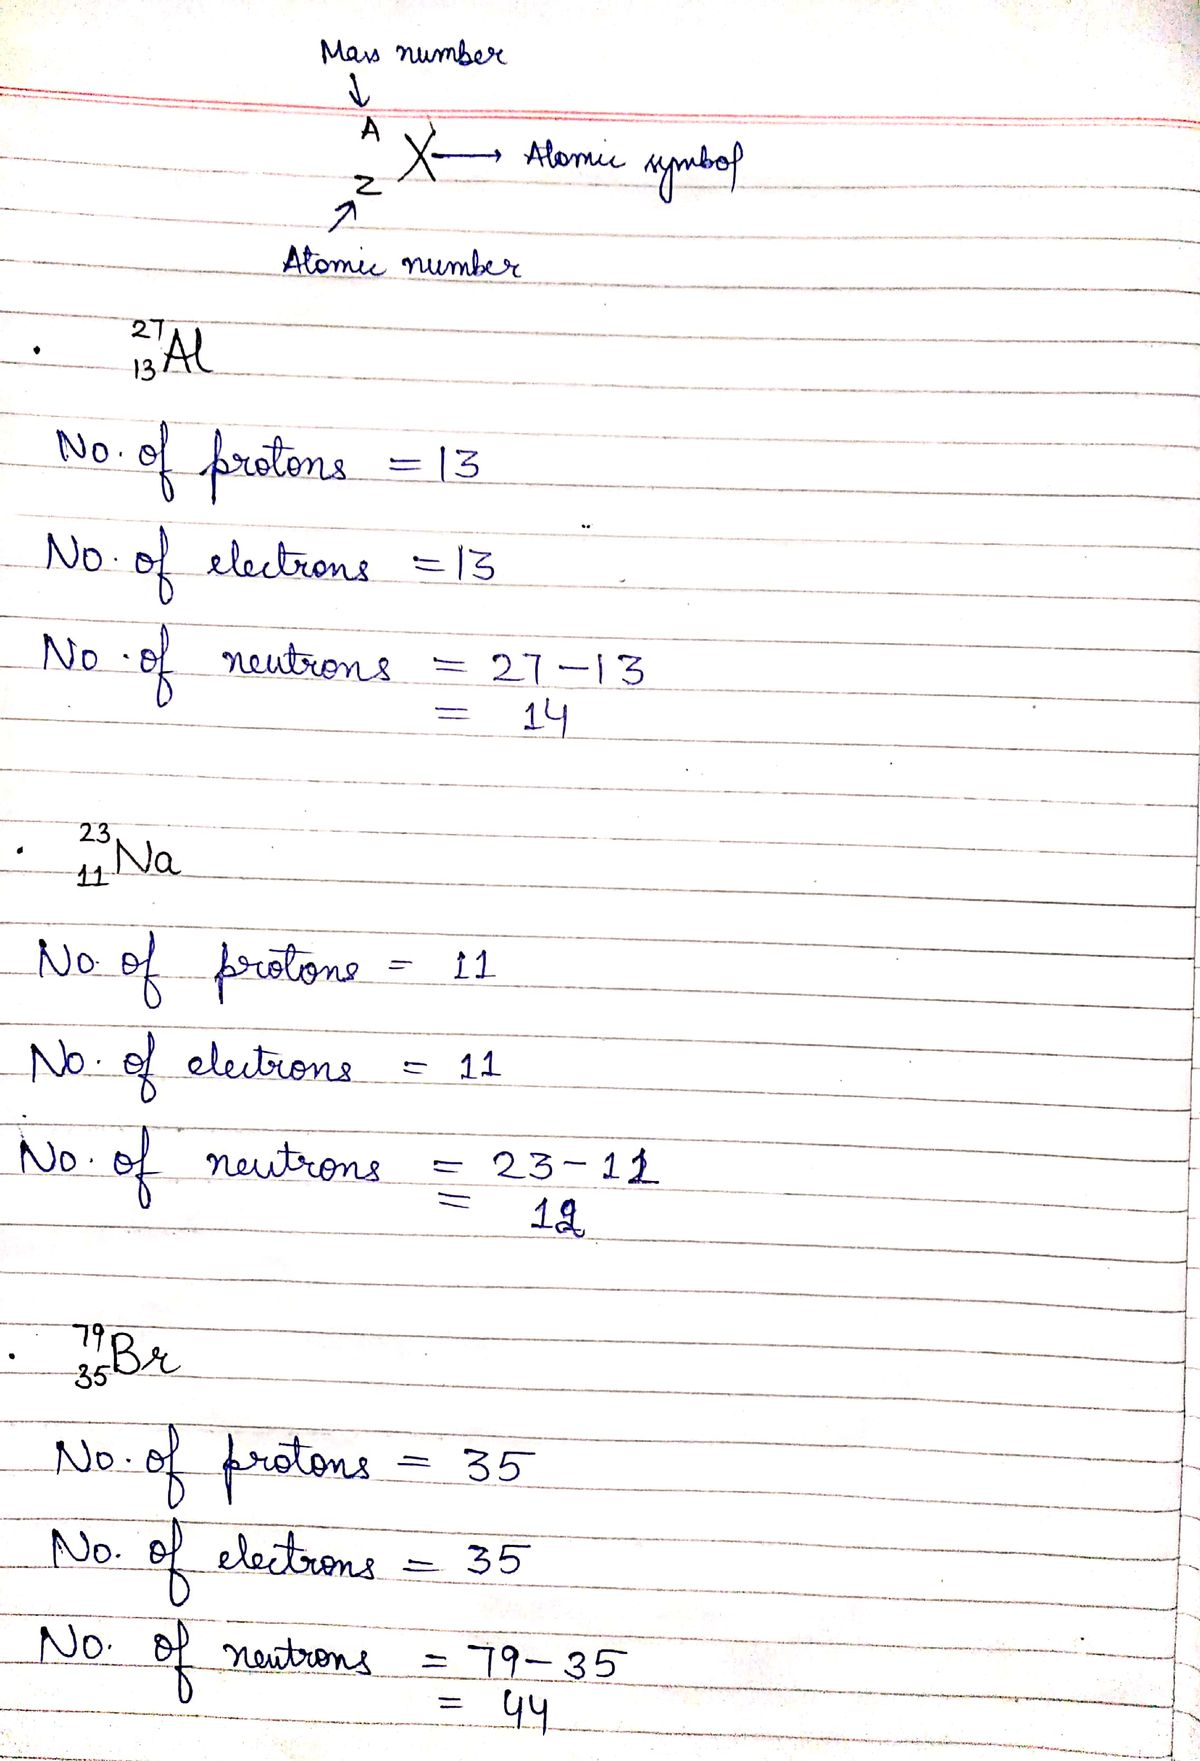 Mass number
↓
A
X → Atomic symbol
Z
↗
Atomic number
. 27
13 Al
No. of protons = 13
No. of electrons = 13
No. of neutrons = 27 - 13
= 14
. 23
11 Na
No. of protons = 11
No. of electrons = 11
No. of neutrons = 23 - 11
= 12
. 79
35 Br
No. of protons = 35
No. of electrons = 35
No. of neutrons = 79 - 35
= 44